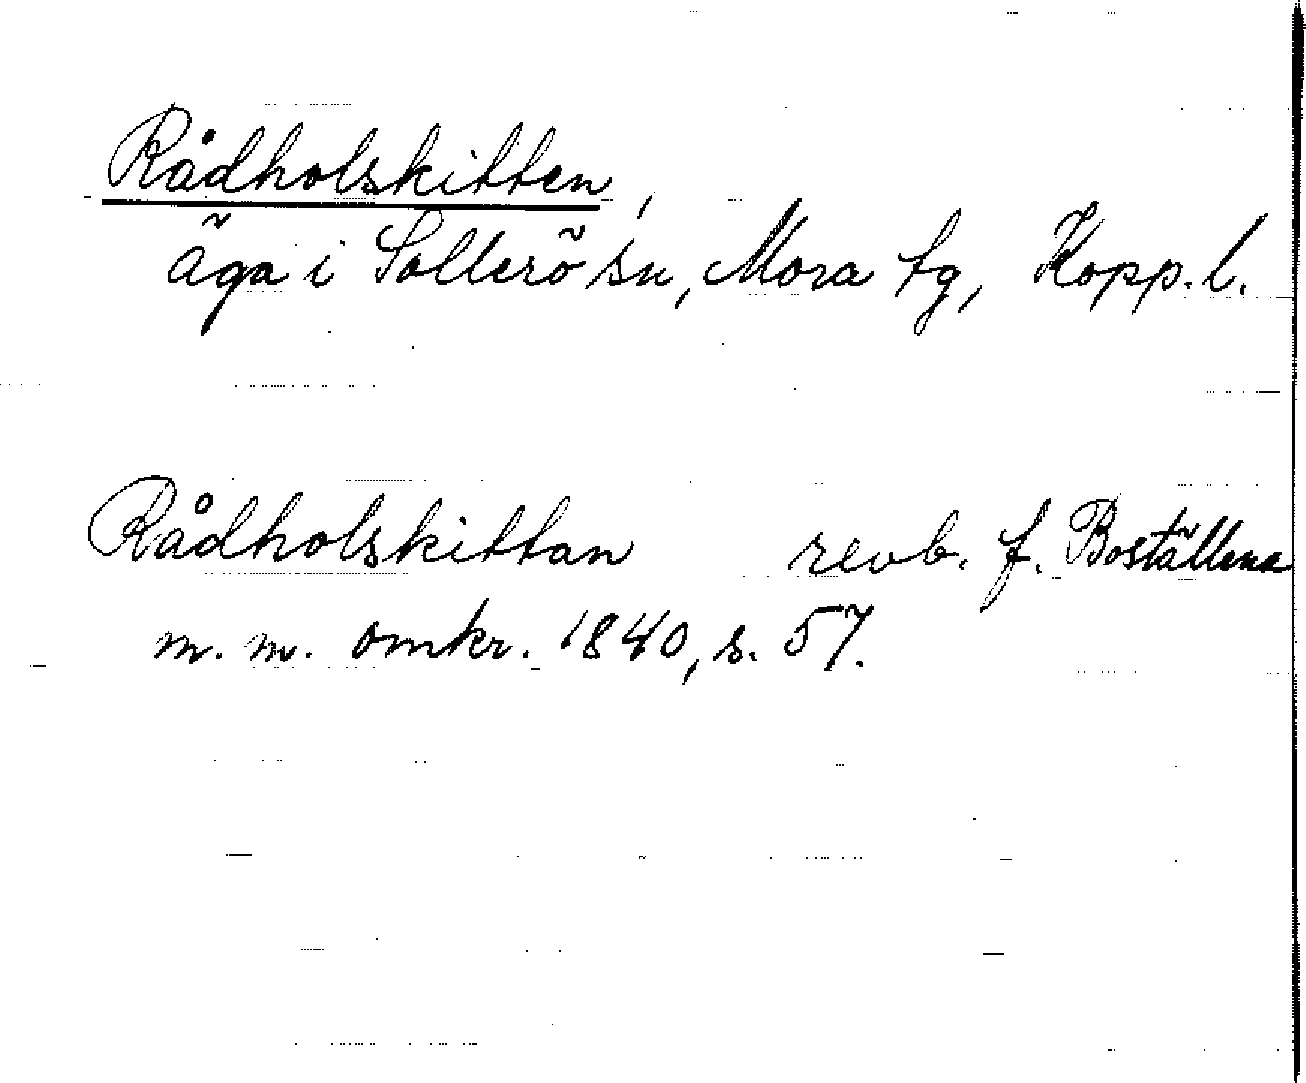 Rådholskitten,
äga i Sollerö sn, Mora tg, Kopp. l.
Rådholskittan revb. f. Boställena
m. m. omkr. 1840, s. 57.